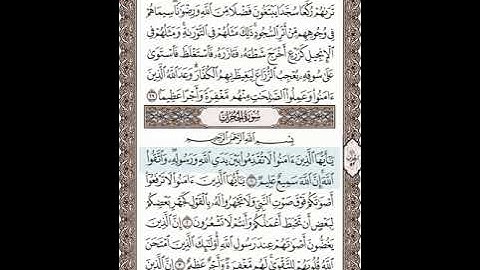 تَرَىٰهُمْ رُكَّعًا سُجَّدًا يَبْتَغُونَ فَضْلًا مِّنَ ٱللَّهِ وَرِضْوَٰنًا ۖ سِيمَاهُمْ
فِى وُجُوهِهِم مِّنْ أَثَرِ ٱلسُّجُودِ ۚ ذَٰلِكَ مَثَلُهُمْ فِى ٱلتَّوْرَىٰةِ ۚ وَمَثَلُهُمْ فِى
ٱلْإِنجِيلِ كَزَرْعٍ أَخْرَجَ شَطْـَٔهُۥ فَـَٔازَرَهُۥ فَٱسْتَغْلَظَ فَٱسْتَوَىٰ
عَلَىٰ سُوقِهِۦ يُعْجِبُ ٱلزُّرَّاعَ لِيَغِيظَ بِهِمُ ٱلْكُفَّارَ ۗ وَعَدَ ٱللَّهُ ٱلَّذِينَ
ءَامَنُوا۟ وَعَمِلُوا۟ ٱلصَّٰلِحَٰتِ مِنْهُم مَّغْفِرَةً وَأَجْرًا عَظِيمًۢا ٢٩
سُورَةُ الحُجُرَاتِ
بِسْمِ ٱللَّهِ ٱلرَّحْمَٰنِ ٱلرَّحِيمِ
يَٰٓأَيُّهَا ٱلَّذِينَ ءَامَنُوا۟ لَا تُقَدِّمُوا۟ بَيْنَ يَدَىِ ٱللَّهِ وَرَسُولِهِۦ ۖ وَٱتَّقُوا۟
ٱللَّهَ ۚ إِنَّ ٱللَّهَ سَمِيعٌ عَلِيمٌ ١ يَٰٓأَيُّهَا ٱلَّذِينَ ءَامَنُوا۟ لَا تَرْفَعُوٓا۟
أَصْوَٰتَكُمْ فَوْقَ صَوْتِ ٱلنَّبِىِّ وَلَا تَجْهَرُوا۟ لَهُۥ بِٱلْقَوْلِ كَجَهْرِ بَعْضِكُمْ
لِبَعْضٍ أَن تَحْبَطَ أَعْمَٰلُكُمْ وَأَنتُمْ لَا تَشْعُرُونَ ٢ إِنَّ ٱلَّذِينَ
يَغُضُّونَ أَصْوَٰتَهُمْ عِندَ رَسُولِ ٱللَّهِ أُو۟لَٰٓئِكَ ٱلَّذِينَ ٱمْتَحَنَ
ٱللَّهُ قُلُوبَهُمْ لِلتَّقْوَىٰ ۚ لَهُم مَّغْفِرَةٌ وَأَجْرٌ عَظِيمٌ ٣ إِنَّ ٱلَّذِينَ